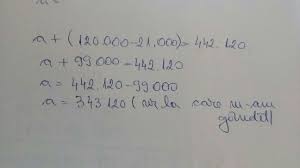 a + (120.000-21.000)=442.120
a + 99000=442.120
a = 442.120-99000
a = 343120 (nr.la care m-am
gândit)